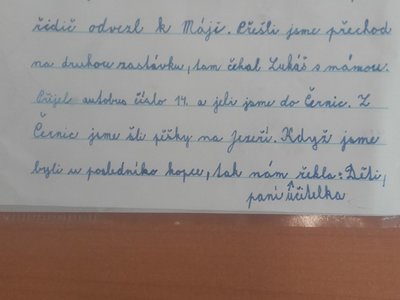 řidič odvezl k Máji. Přešli jsme přechod
na druhou zastávku, tam čekal Lukáš s mámou.
Přijel autobus číslo 14. a jeli jsme do Černic. Z
Černic jsme šli pěšky na Jezeří. Když jsme
byli u posledního kopce, tak nám řekla: Děti,
paní učitelka